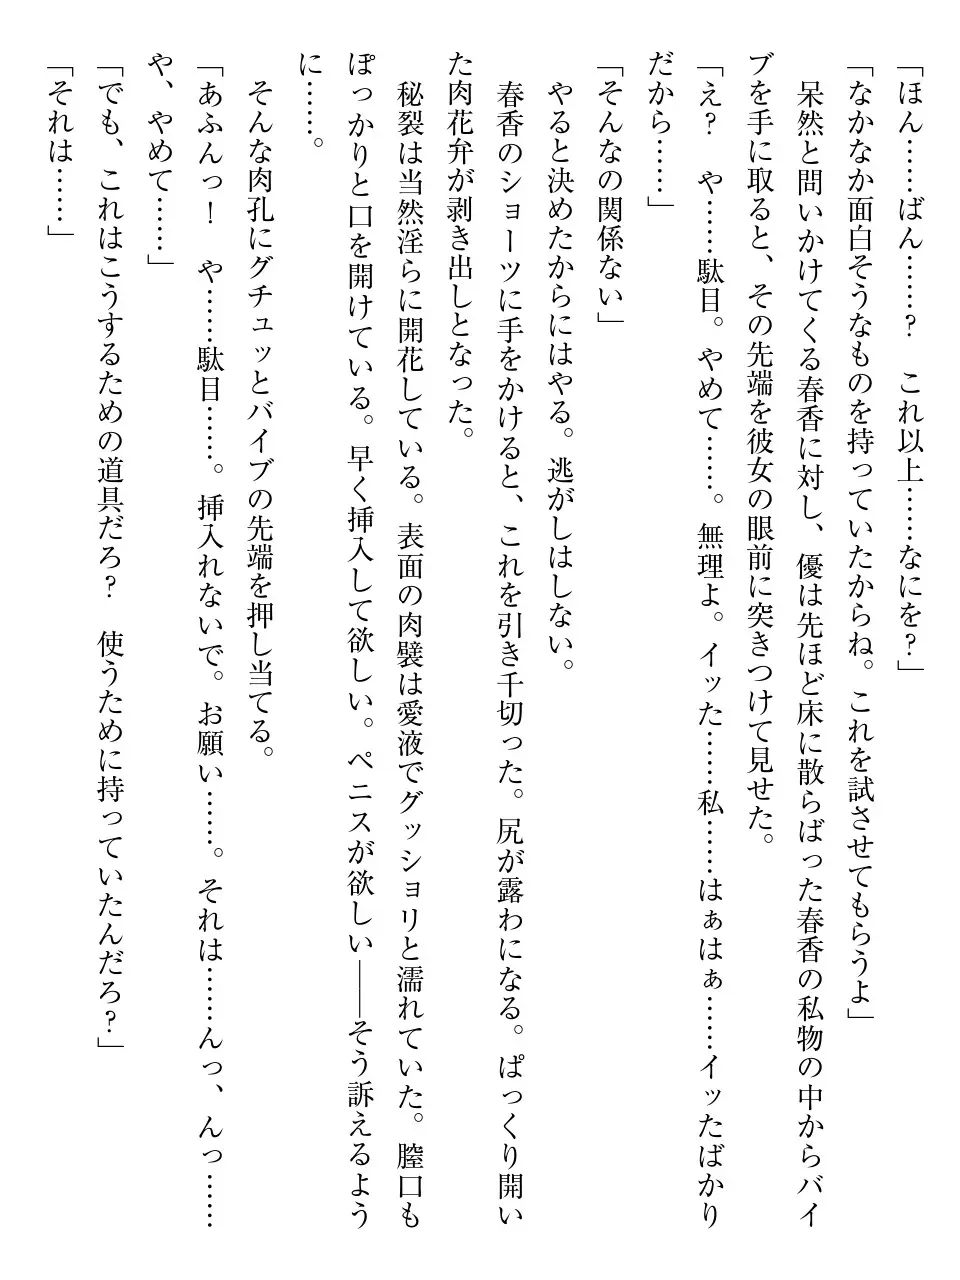 「ほん……ばん……？　これ以上……なにを？」
「なかなか面白そうなものを持っていたからね。これを試させてもらうよ」
　呆然と問いかけてくる春香に対し、優は先ほど床に散らばった春香の私物の中からバイ
ブを手に取ると、その先端を彼女の眼前に突きつけて見せた。
「え？　や……駄目。やめて……。無理よ。イッた……私……はぁはぁ……イッたばかり
だから……」
「そんなの関係ない」
　やると決めたからにはやる。逃がしはしない。
　春香のショーツに手をかけると、これを引き千切った。尻が露わになる。ぱっくり開い
た肉花弁が剥き出しとなった。
　秘裂は当然淫らに開花している。表面の肉襞は愛液でグッショリと濡れていた。膣口も
ぽっかりと口を開けている。早く挿入して欲しい。ペニスが欲しい――そう訴えるよう
に……。
　そんな肉孔にグチュッとバイブの先端を押し当てる。
「あふんっ！　や……駄目……。挿入れないで。お願い……。それは……んっ、んっ……
や、やめて……」
「でも、これはこうするための道具だろ？　使うために持っていたんだろ？」
「それは……」